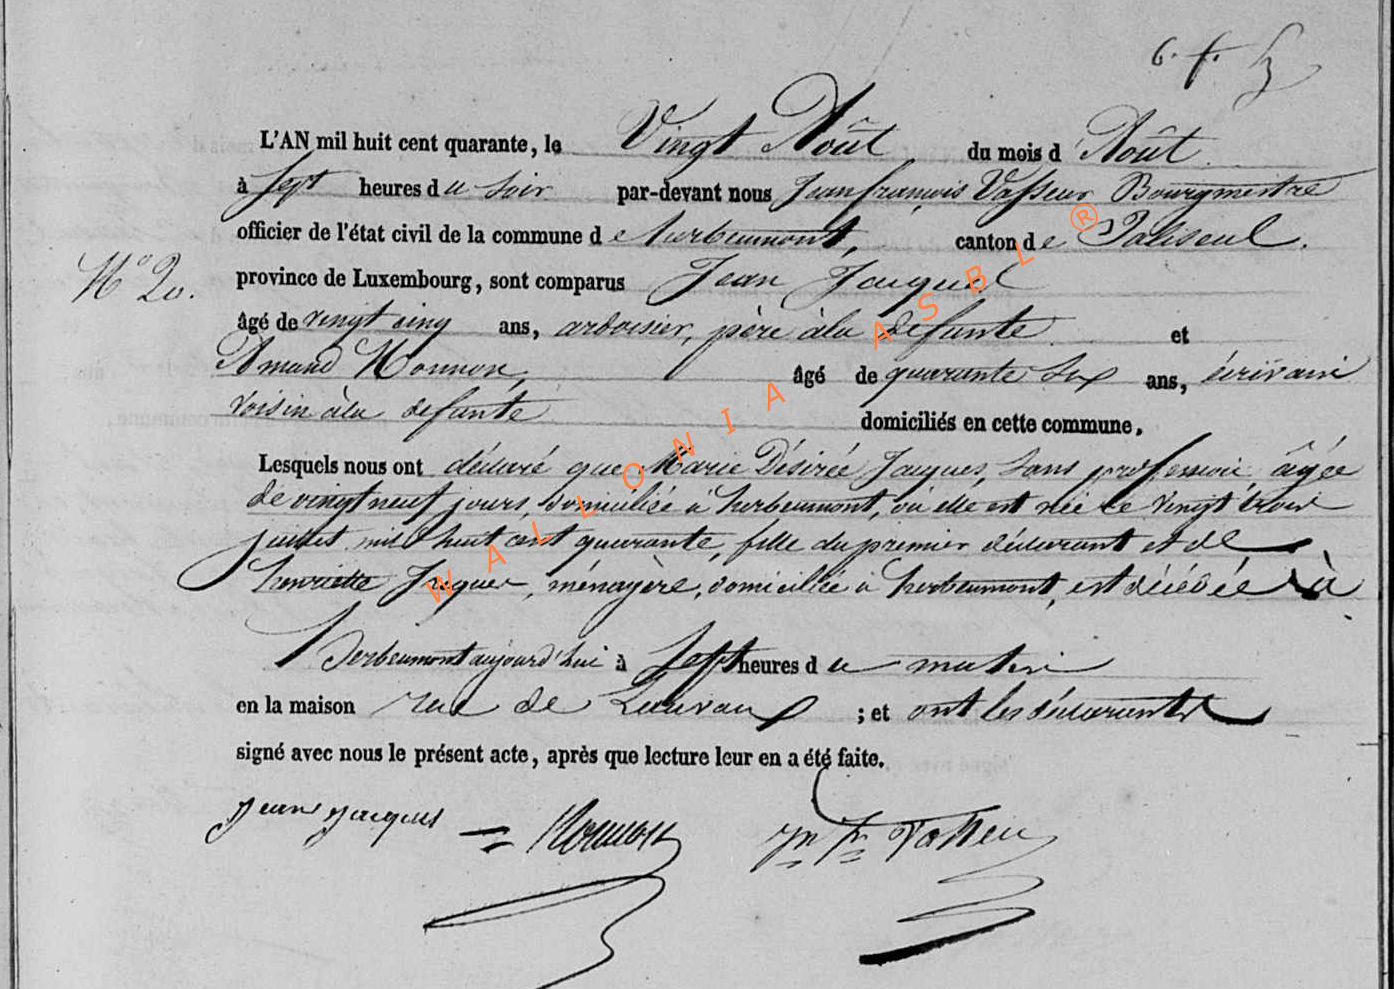 6. f.
L'AN mil huit cent quarante, le Vingt Août du mois d'Août
à Sept heures du Soir par-devant nous Jean françois Vasseur Bourgmestre
officier de l'état civil de la commune de herbeumont, canton de Paliseul.
N° 20.
province de Luxembourg, sont comparus Jean Jacques
âgé de vingt cinq ans, ardoisier, père à la defunte et
Amand Monnon, âgé de quarante Six ans, écrivain
voisin à la defunte domiciliés en cette commune.
Lesquels nous ont déclaré que Marie Désirée Jacques, Sans profession âgée
de vingt neuf jours, domiciliée à herbeumont, où elle est née le vingt trois
juillet mil huit cent quarante, fille du premier déclarant et de
henriette Jacques, ménagère, domiciliée à herbeumont, est décédée à
Herbeumont aujourd'hui à Sept heures du matin
en la maison rue de ; et ont les déclarants
signé avec nous le présent acte, après que lecture leur en a été faite.
Jean Jacques Monnon Jn Fr Vasseur
WALLONIA ASBL ®